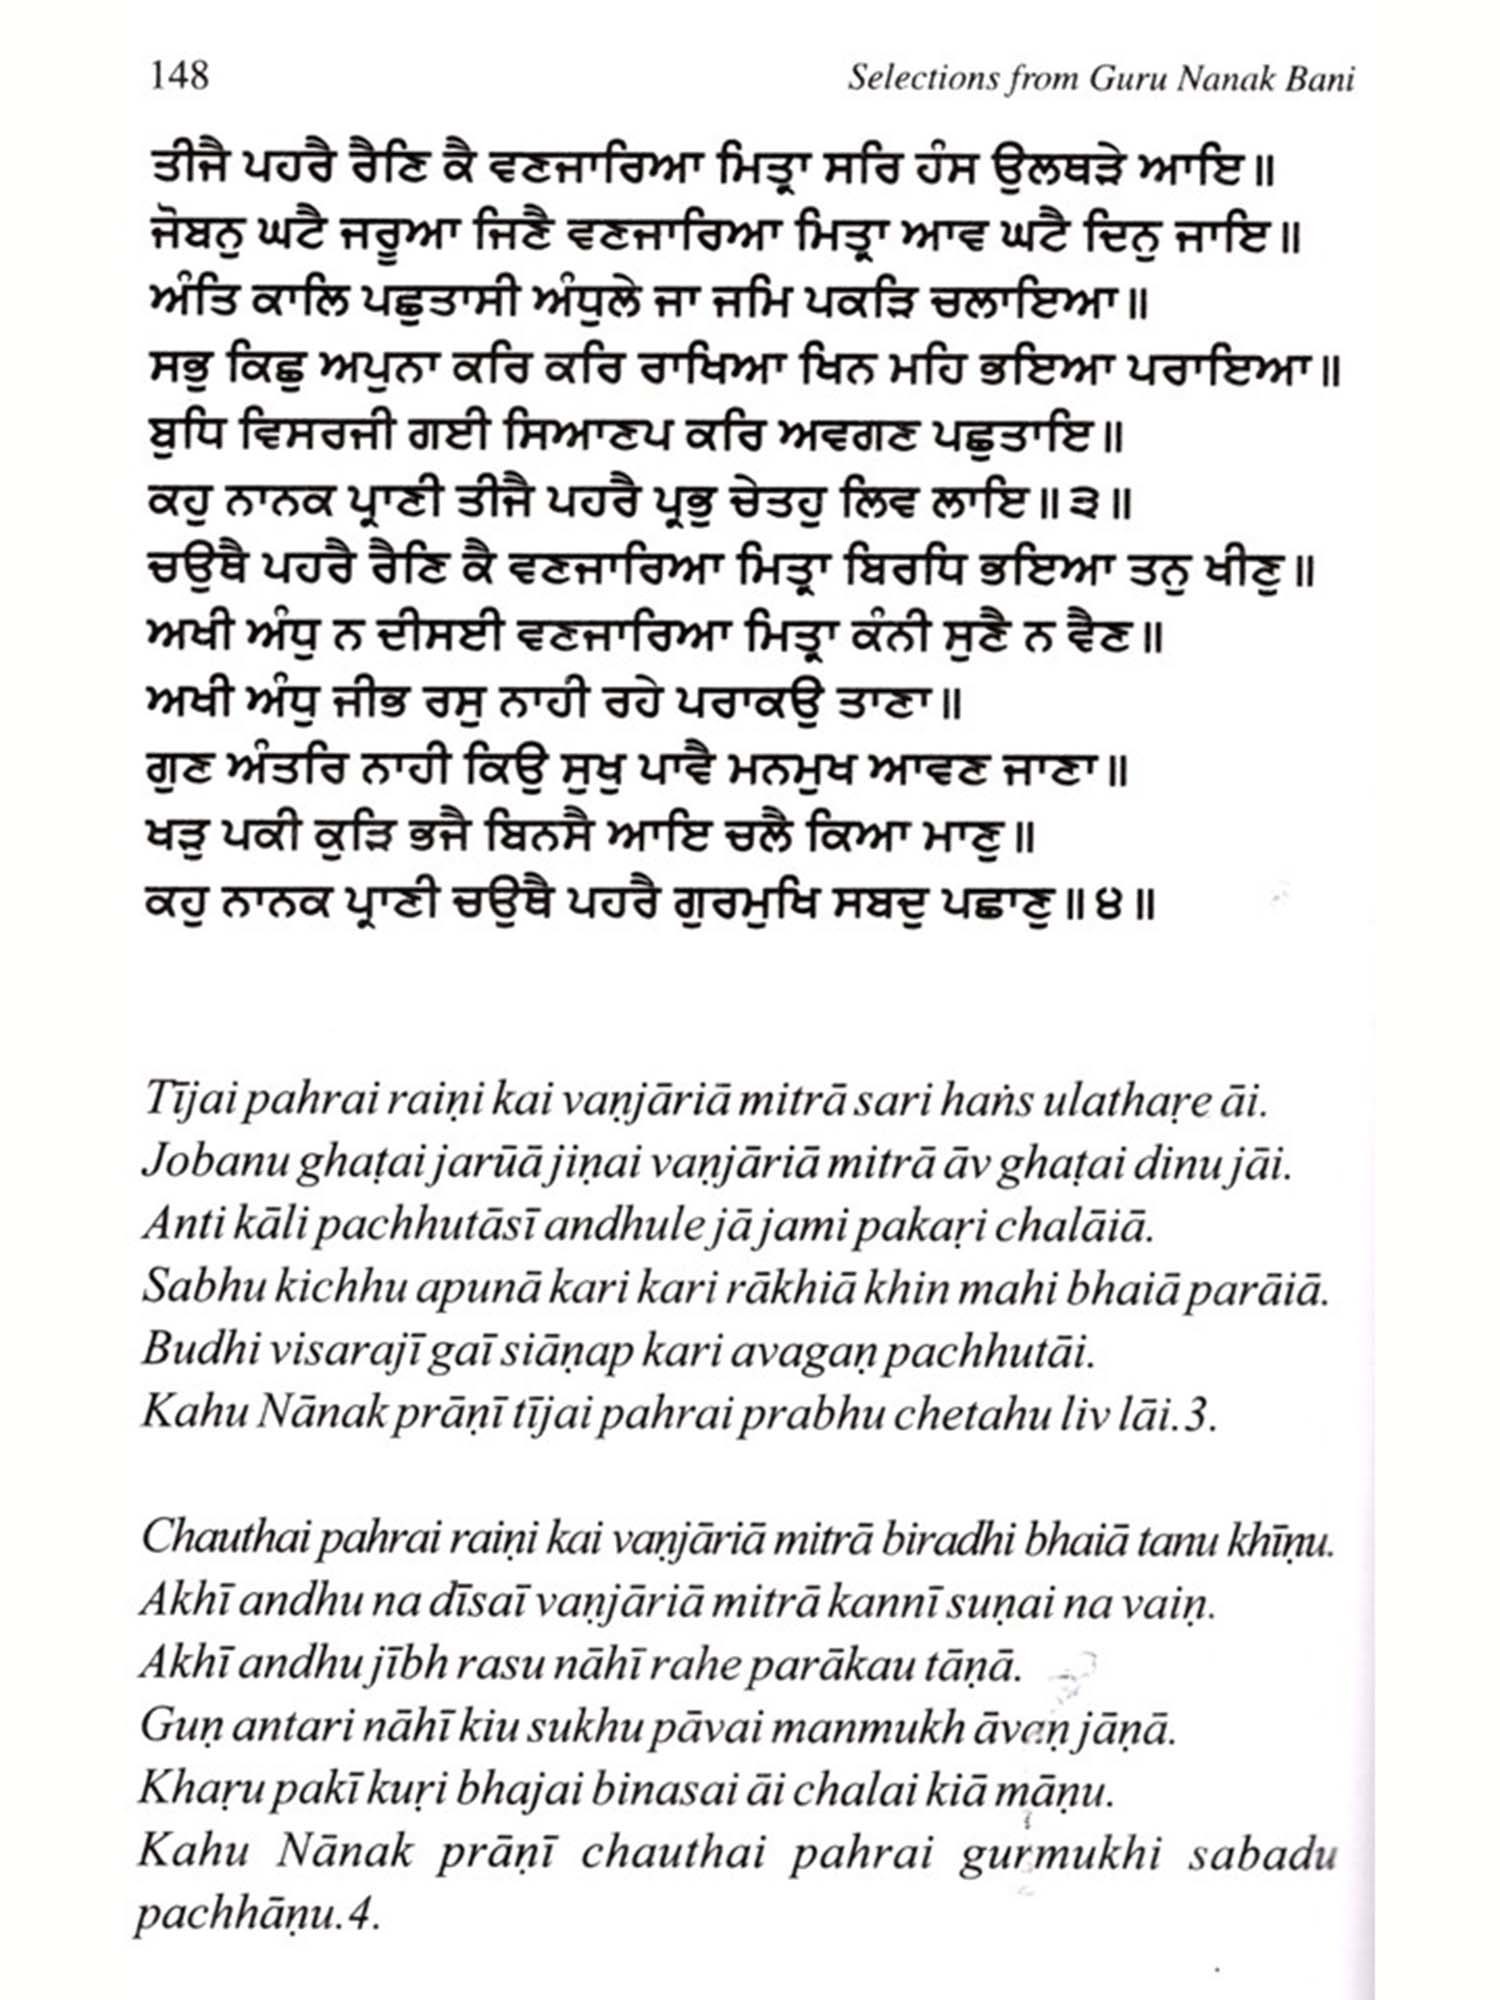 148
Selections from Guru Nanak Bani
ਤੀਜੈ ਪਹਰੈ ਰੈਣਿ ਕੈ ਵਣਜਾਰਿਆ ਮਿਤ੍ਰਾ ਸਰਿ ਹੰਸ ਉਲਥੜੇ ਆਇ॥
ਜੋਬਨੁ ਘਟੈ ਜਰੂਆ ਜਿਣੈ ਵਣਜਾਰਿਆ ਮਿਤ੍ਰਾ ਆਵ ਘਟੈ ਦਿਨੁ ਜਾਇ॥
ਅੰਤਿ ਕਾਲਿ ਪਛੁਤਾਸੀ ਅੰਧੁਲੇ ਜਾ ਜਮਿ ਪਕੜਿ ਚਲਾਇਆ॥
ਸਭੁ ਕਿਛੁ ਅਪੁਨਾ ਕਰਿ ਕਰਿ ਰਾਖਿਆ ਖਿਨ ਮਹਿ ਭਇਆ ਪਰਾਇਆ॥
ਬੁਧਿ ਵਿਸਰਜੀ ਗਈ ਸਿਆਣਪ ਕਰਿ ਅਵਗਣ ਪਛੁਤਾਇ॥
ਕਹੁ ਨਾਨਕ ਪ੍ਰਾਣੀ ਤੀਜੈ ਪਹਰੈ ਪ੍ਰਭੁ ਚੇਤਹੁ ਲਿਵ ਲਾਇ॥੩॥
ਚਉਥੈ ਪਹਰੈ ਰੈਣਿ ਕੈ ਵਣਜਾਰਿਆ ਮਿਤ੍ਰਾ ਬਿਰਧਿ ਭਇਆ ਤਨੁ ਖੀਣੁ॥
ਅਖੀ ਅੰਧੁ ਨ ਦੀਸਈ ਵਣਜਾਰਿਆ ਮਿਤ੍ਰਾ ਕੰਨੀ ਸੁਣੈ ਨ ਵੈਣ॥
ਅਖੀ ਅੰਧੁ ਜੀਭ ਰਸੁ ਨਾਹੀ ਰਹੇ ਪਰਾਕਉ ਤਾਣਾ॥
ਗੁਣ ਅੰਤਰਿ ਨਾਹੀ ਕਿਉ ਸੁਖੁ ਪਾਵੈ ਮਨਮੁਖ ਆਵਣ ਜਾਣਾ॥
ਖੜੁ ਪਕੀ ਕੁੜਿ ਭਜੈ ਬਿਨਸੈ ਆਇ ਚਲੈ ਕਿਆ ਮਾਣੁ॥
ਕਹੁ ਨਾਨਕ ਪ੍ਰਾਣੀ ਚਉਥੈ ਪਹਰੈ ਗੁਰਮੁਖਿ ਸਬਦੁ ਪਛਾਣੁ॥੪॥
Tījai pahrai raiṇi kai vaṇjāriā mitrā sari haṅs ulathaṛe āi.
Jobanu ghaṭai jarūā jiṇai vaṇjāriā mitrā āv ghaṭai dinu jāi.
Anti kāli pachhutāsī andhule jā jami pakaṛi chalāiā.
Sabhu kichhu apunā kari kari rākhiā khin mahi bhaiā parāiā.
Budhi visarajī gaī siāṇap kari avagaṇ pachhutāi.
Kahu Nānak prāṇī tījai pahrai prabhu chetahu liv lāi.3.
Chauthai pahrai raiṇi kai vaṇjāriā mitrā biradhi bhaiā tanu khīṇu.
Akhī andhu na dīsaī vaṇjāriā mitrā kannī suṇai na vaiṇ.
Akhī andhu jībh rasu nāhī rahe parākau tāṇā.
Guṇ antari nāhī kiu sukhu pāvai manmukh āvaṇ jāṇā.
Khaṛu pakī kuṛi bhajai binasai āi chalai kiā māṇu.
Kahu Nānak prāṇī chauthai pahrai gurmukhi sabadu
pachhāṇu.4.